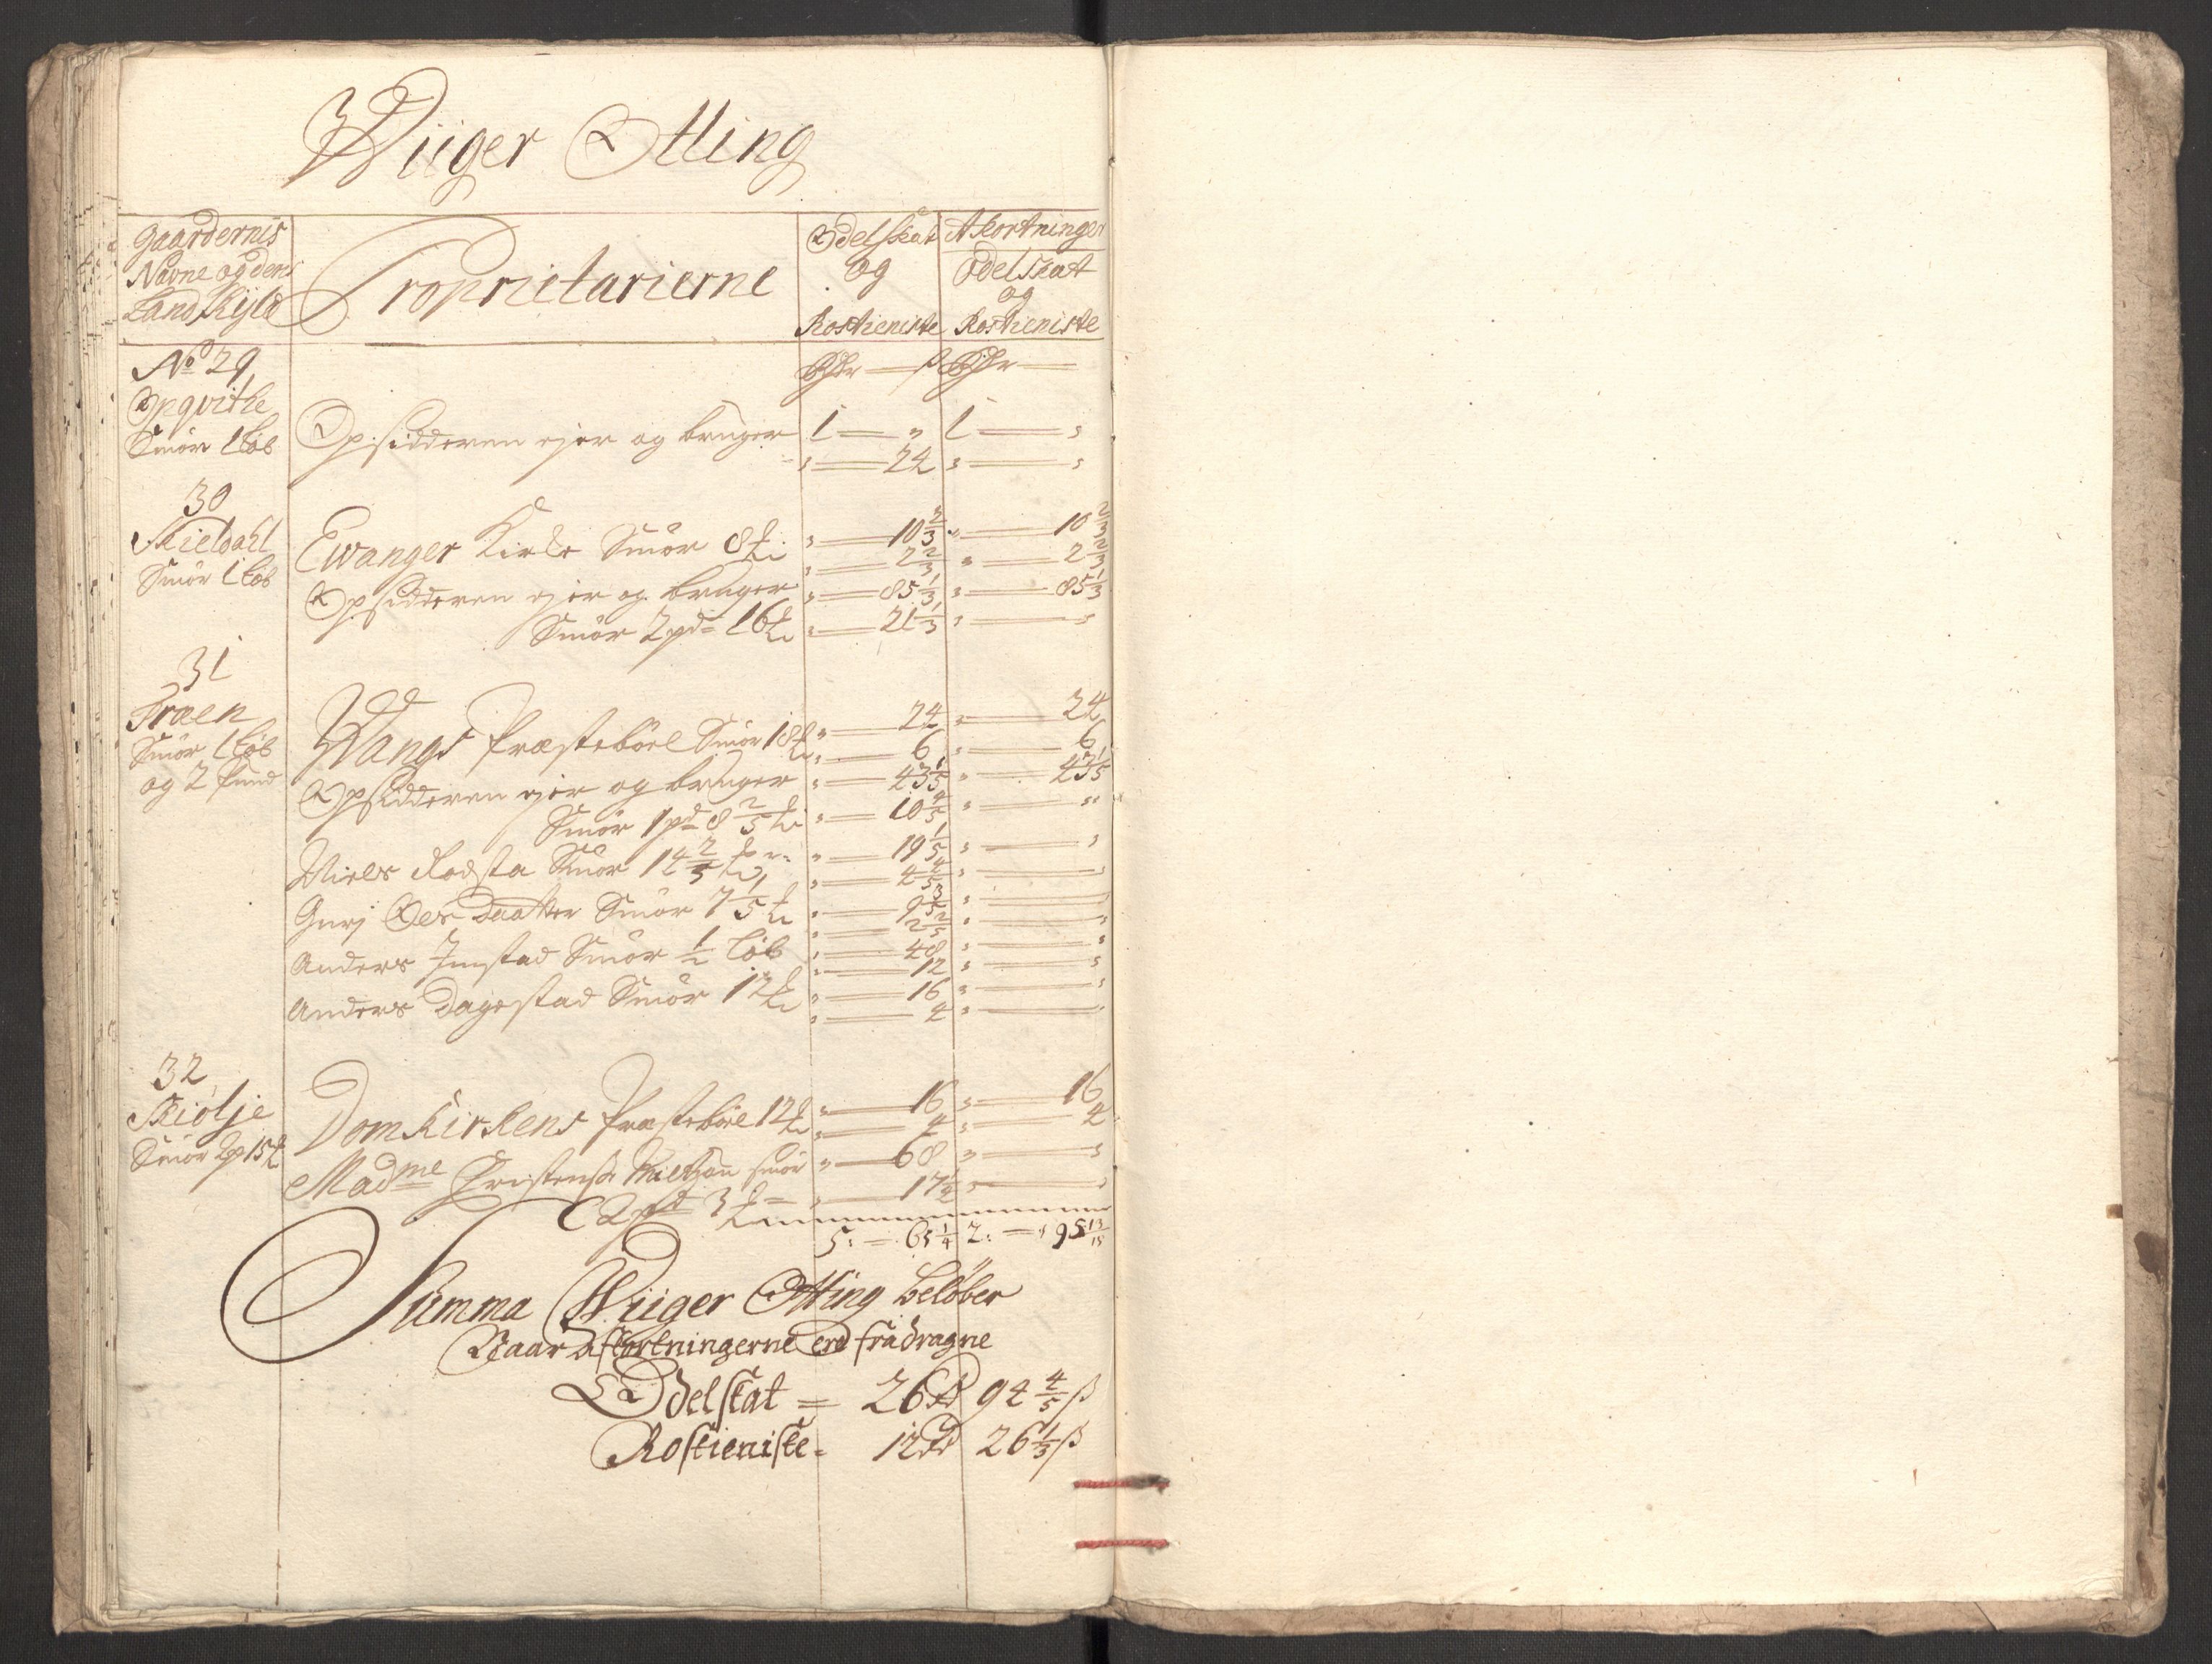 Wiiger Otting
Gaardernis Navne og dens Landskyld
Proprietarierne
Odelskat og Rostieniste
Afkortninger Odelskat og Rostieniste
No 29
Opqvithe
Smör 1 Löb
Opsidderen ejer og bruger 1 — " 1 — "
" — 24 " — "
30
Skieldahl
Smör 1 Löb
Ewanger Kirke Smör 8 " — 10 2/3 " — 10 2/3
" — 2 2/3 " — 2 2/3
Opsidderen ejer og bruger " — 85 1/3 " — 85 1/3
Smör 2 pd 16 " — 21 1/3 " — "
31
Fræen
Smör 1 Löb
og 2 Pund
Wangs Præsteböel Smör 18 " — 24 " — 24
" — 6 " — 6
Opsidderen ejer og bruger " — 43 1/5 " — 43 1/5
Smör 1 pd 8 2/5 " — 10 4/5 " — "
Niels Rodsta Smör 14 2/5 " — 19 1/5 " — "
" — 4 4/5 " — "
Gurj Oes Daatter Smör 7 1/5 " — 9 3/5 " — "
" — 2 2/5 " — "
Anders Jmstad Smör 1/2 Löb " — 48 " — "
" — 12 " — "
Anders Dagestad Smör 12 " — 16 " — "
" — 4 " — "
32
Skiolje
Smör 2 p 15
DomKirkens Præsteböel 12 " — 16 " — 16
" — 4 " — 4
Madme Christense Miltzou smör " — 68 " — "
2 pd 3 " — 17 1/4 " — "
5: — 65 1/4 2: — 95 13/15
Summa Wiiger Otting belöber
Naar Afkortningerne ere fradragne
Odelskat = 26 Rd 94 4/5 ß
Rostieniste = 12 Rd 26 1/3 ß